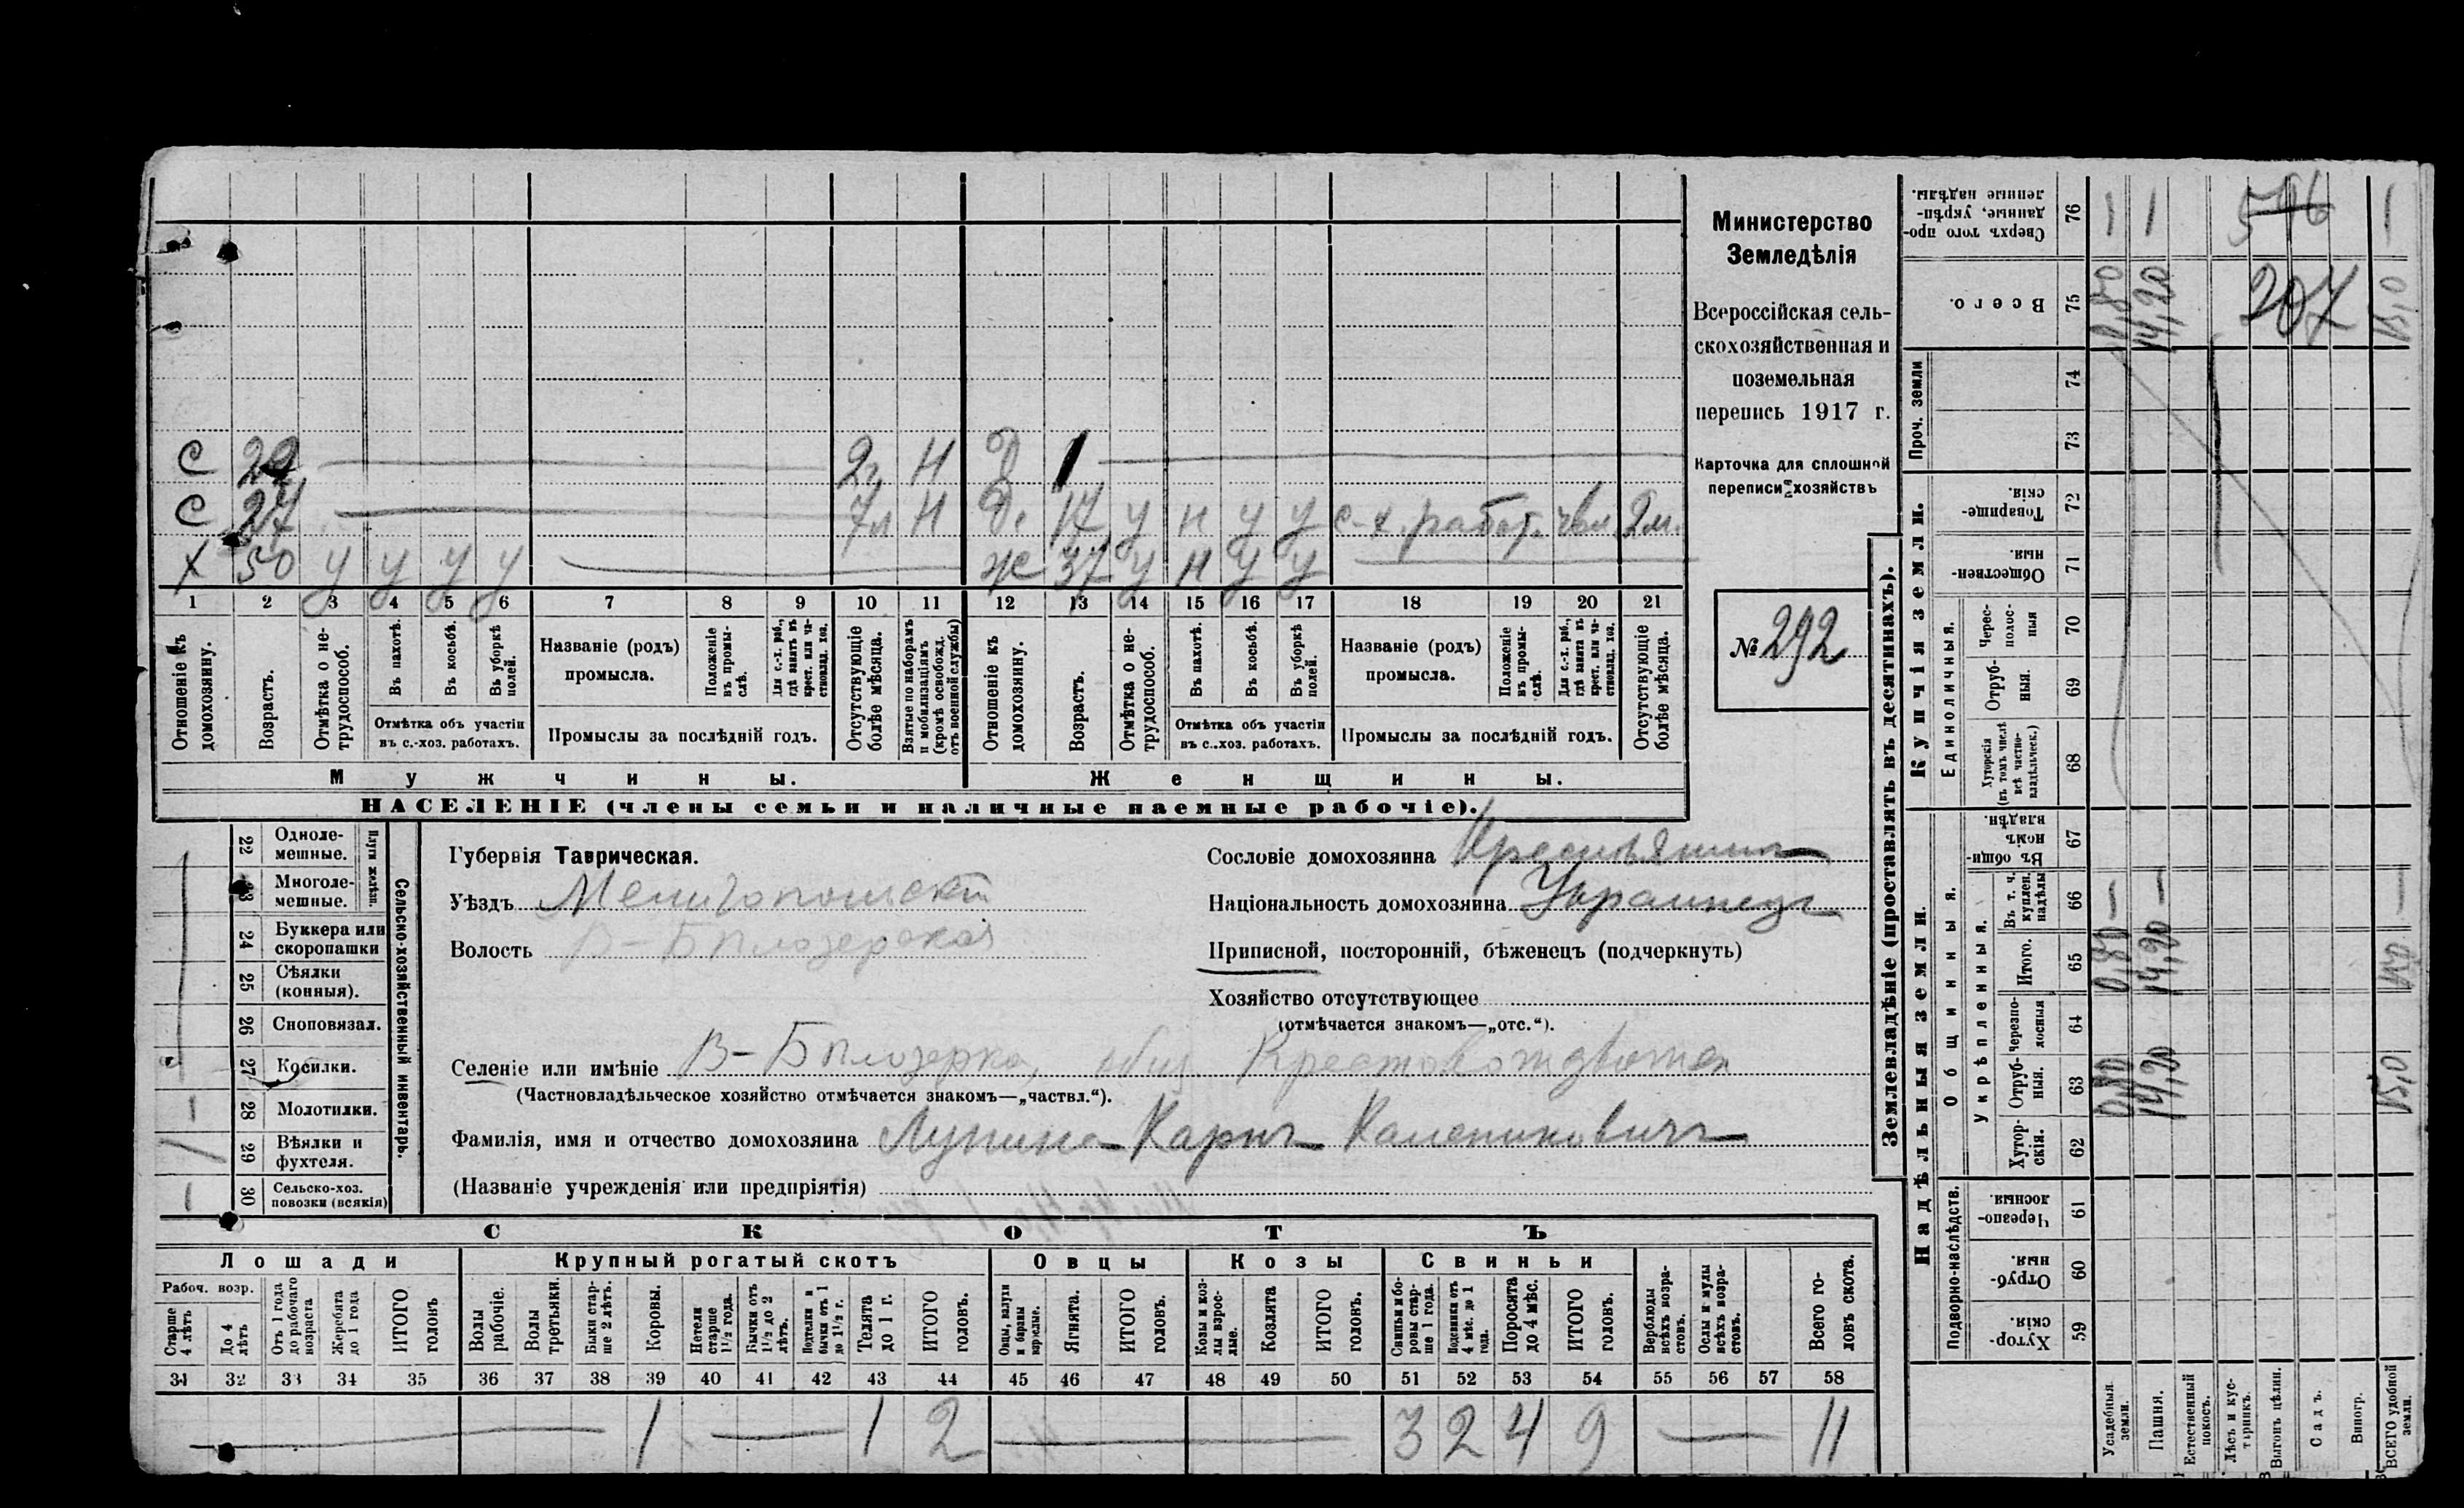 С 22 2г Н Д 1
С 27 7л Н Д. 17 у н у у с-х. работ. чвл. 2м.
Х 50 у у у у ж 37 у н у у
1 2 3 4 5 6 7 8 9 10 11 12 13 14 15 16 17 18 19 20 21
Отношеніе къ домохозяину.
Возрастъ.
Отмѣтка о не-трудоспособ.
Въ пахотѣ.
Въ косьбѣ.
Въ уборкѣ полей.
Отмѣтка объ участіи
въ с.-хоз. работахъ.
Названіе (родъ)
промысла.
Положеніе въ промы-слѣ.
Для с.-х. раб., гдѣ занятъ въ крест. или ча-стновлад. хоз.
Промыслы за послѣдній годъ.
Отсутствующіе болѣе мѣсяца.
Взятые по наборамъ и мобилизаціямъ (кромѣ освобожд. отъ военной службы)
Отношеніе къ домохозяину.
Возрастъ.
Отмѣтка о не-трудоспособ.
Въ пахотѣ.
Въ косьбѣ.
Въ уборкѣ полей.
Отмѣтка объ участіи
въ с..хоз. работахъ.
Названіе (родъ)
промысла.
Положеніе въ промы-слѣ.
Для с.-х. раб., гдѣ занята въ крест. или ча-стновлад. хоз.
Промыслы за послѣдній годъ.
Отсутствующіе болѣе мѣсяца.
Мужчины. Женщины.
НАСЕЛЕНІЕ (члены семьи и наличные наемные рабочіе).
Министерство
Земледѣлія
Всероссійская сель-
скохозяйственная и
поземельная
перепись 1917 г.
Карточка для сплошной
переписи хозяйствъ
№ 292
Сельско-хозяйственный инвентарь.
Плуги желѣзн.
22 Одноле-мешные.
23 Многоле-мешные.
24 Буккера или скоропашки
25 Сѣялки (конныя).
26 Сноповязал.
27 Косилки.
28 Молотилки.
29 Вѣялки и фухтеля.
30 Сельско-хоз. повозки (всякія)
Губернія Таврическая.
Уѣздъ Мелитопольскій
Волость В-Бѣлозерская
Сословіе домохозяина Крестьянинъ
Національность домохозяина Украинецъ
Приписной, посторонній, бѣженецъ (подчеркнуть)
Хозяйство отсутствующее
(отмѣчается знакомъ—„отс.“).
Селеніе или имѣніе В-Бѣлозерка, общ. Крестовоздвижен
(Частновладѣльческое хозяйство отмѣчается знакомъ—„частвл.“).
Фамилія, имя и отчество домохозяина Лупина Карпъ Калениковичъ
(Названіе учрежденія или предпріятія)
СКОТЪ
Лошади Крупный рогатый скотъ Овцы Козы Свиньи
Рабоч. возр.
Старше 4 лѣтъ
До 4 лѣтъ
Отъ 1 года до рабочаго возраста
Жеребята до 1 года
ИТОГО головъ
Волы рабочіе.
Волы третьяки.
Быки стар-ше 2 лѣтъ.
Коровы.
Нетели старше 1 1/2 года.
Бычки отъ 1 1/2 до 2 лѣтъ.
Подтелки и бычки отъ 1 до 1 1/2 г.
Телята до 1 г.
ИТОГО головъ.
Овцы, валухи и бараны взрослые.
Ягнята.
ИТОГО головъ.
Козы и коз-лы взрос-лые.
Козлята
ИТОГО головъ.
Свиньи и бо-ровы стар-ше 1 года.
Подсвинки отъ 4 мѣс. до 1 года.
Поросята до 4 мѣс.
ИТОГО головъ.
Верблюды всѣхъ возра-стовъ.
Ослы и мулы всѣхъ возра-стовъ.
Всего го-ловъ скота.
31 32 33 34 35 36 37 38 39 40 41 42 43 44 45 46 47 48 49 50 51 52 53 54 55 56 57 58
1 1 2 3 2 4 9 11
Землевладѣніе (проставлять въ десятинахъ).
Надѣльныя земли. Купчія земли. Проч. земли
Подворно-наслѣдств. Общинныя. Укрѣпленныя. Единоличныя.
59 Хутор-скія.
60 Отруб-ныя.
61 Черезпо-лосныя.
62 Хутор-скія.
63 Отруб-ныя. 0,80 14,20 15,0
64 Черезпо-лосныя
65 Итого. 0,80 14,20 15,0
66 Въ т. ч. куплен. надѣлы — — —
67 Въ общи-номъ владѣн.
68 Хуторскія (въ томъ числѣ всѣ частно-владѣльческ.)
69 Отруб-ныя.
70 Черес-полос-ныя
71 Обществен-ныя.
72 Товарище-скія.
73
74
75 Всего. 0,80 14,20 15,0
76 Сверхъ того про-данные, укрѣп-ленные надѣлы. — — —
546
207
Усадебныя земли.
Пашня.
Естественный покосъ.
Лѣсъ и кус-тарникъ.
Выгонъ цѣлин.
Садъ.
Виногр.
ВСЕГО удобной земли.